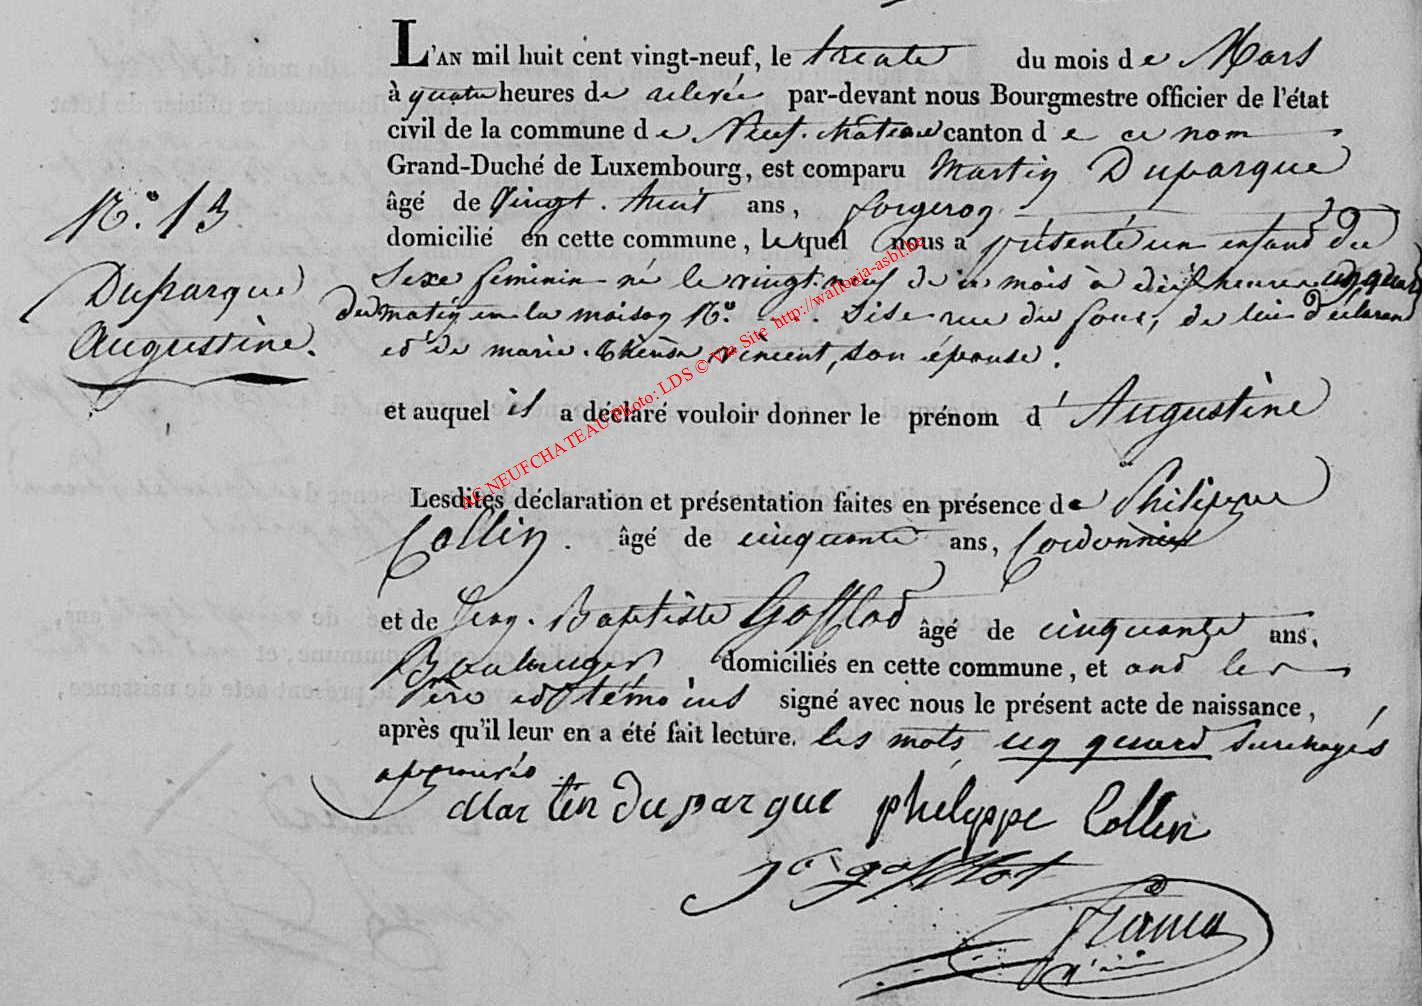 L'AN mil huit cent vingt-neuf, le trente du mois de Mars
à quatre heures de relevée par-devant nous Bourgmestre officier de l'état
civil de la commune de Neufchâteau canton de ce nom
Grand-Duché de Luxembourg, est comparu Martin Duparque
âgé de Vingt-huit ans, forgeron
domicilié en cette commune, lequel nous a présenté un enfant du
Sexe feminin né le vingt-neuf de ce mois à dix heures un quart
du matin en la maison N.º sise rue du four, de lui déclarant
et de marie thérèse vincent, son épouse.
et auquel il a déclaré vouloir donner le prénom d'Augustine
Lesdites déclaration et présentation faites en présence de Philippe
Collin. âgé de cinquante ans, Cordonnier
et de Jean-Baptiste Gofflod âgé de cinquante ans,
Boulanger domiciliés en cette commune, et ont les
Père et témoins signé avec nous le présent acte de naissance,
après qu'il leur en a été fait lecture. les mots un quard surchargés
approuvés
N.º 13
Duparque
Augustine.
Martin duparque phelippe Collin
AC NEUFCHATEAU Photo: LDS © Via Site http://wallonia-asbl.be